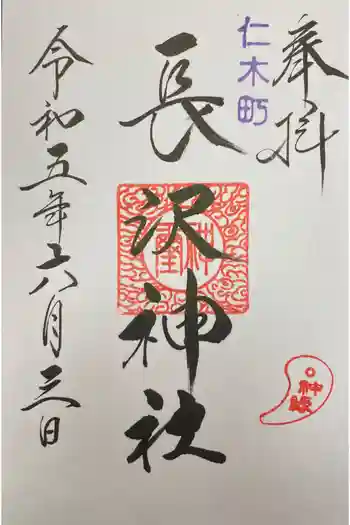 奉拝
仁木町
長沢神社
神璽
神縁
令和五年六月三日